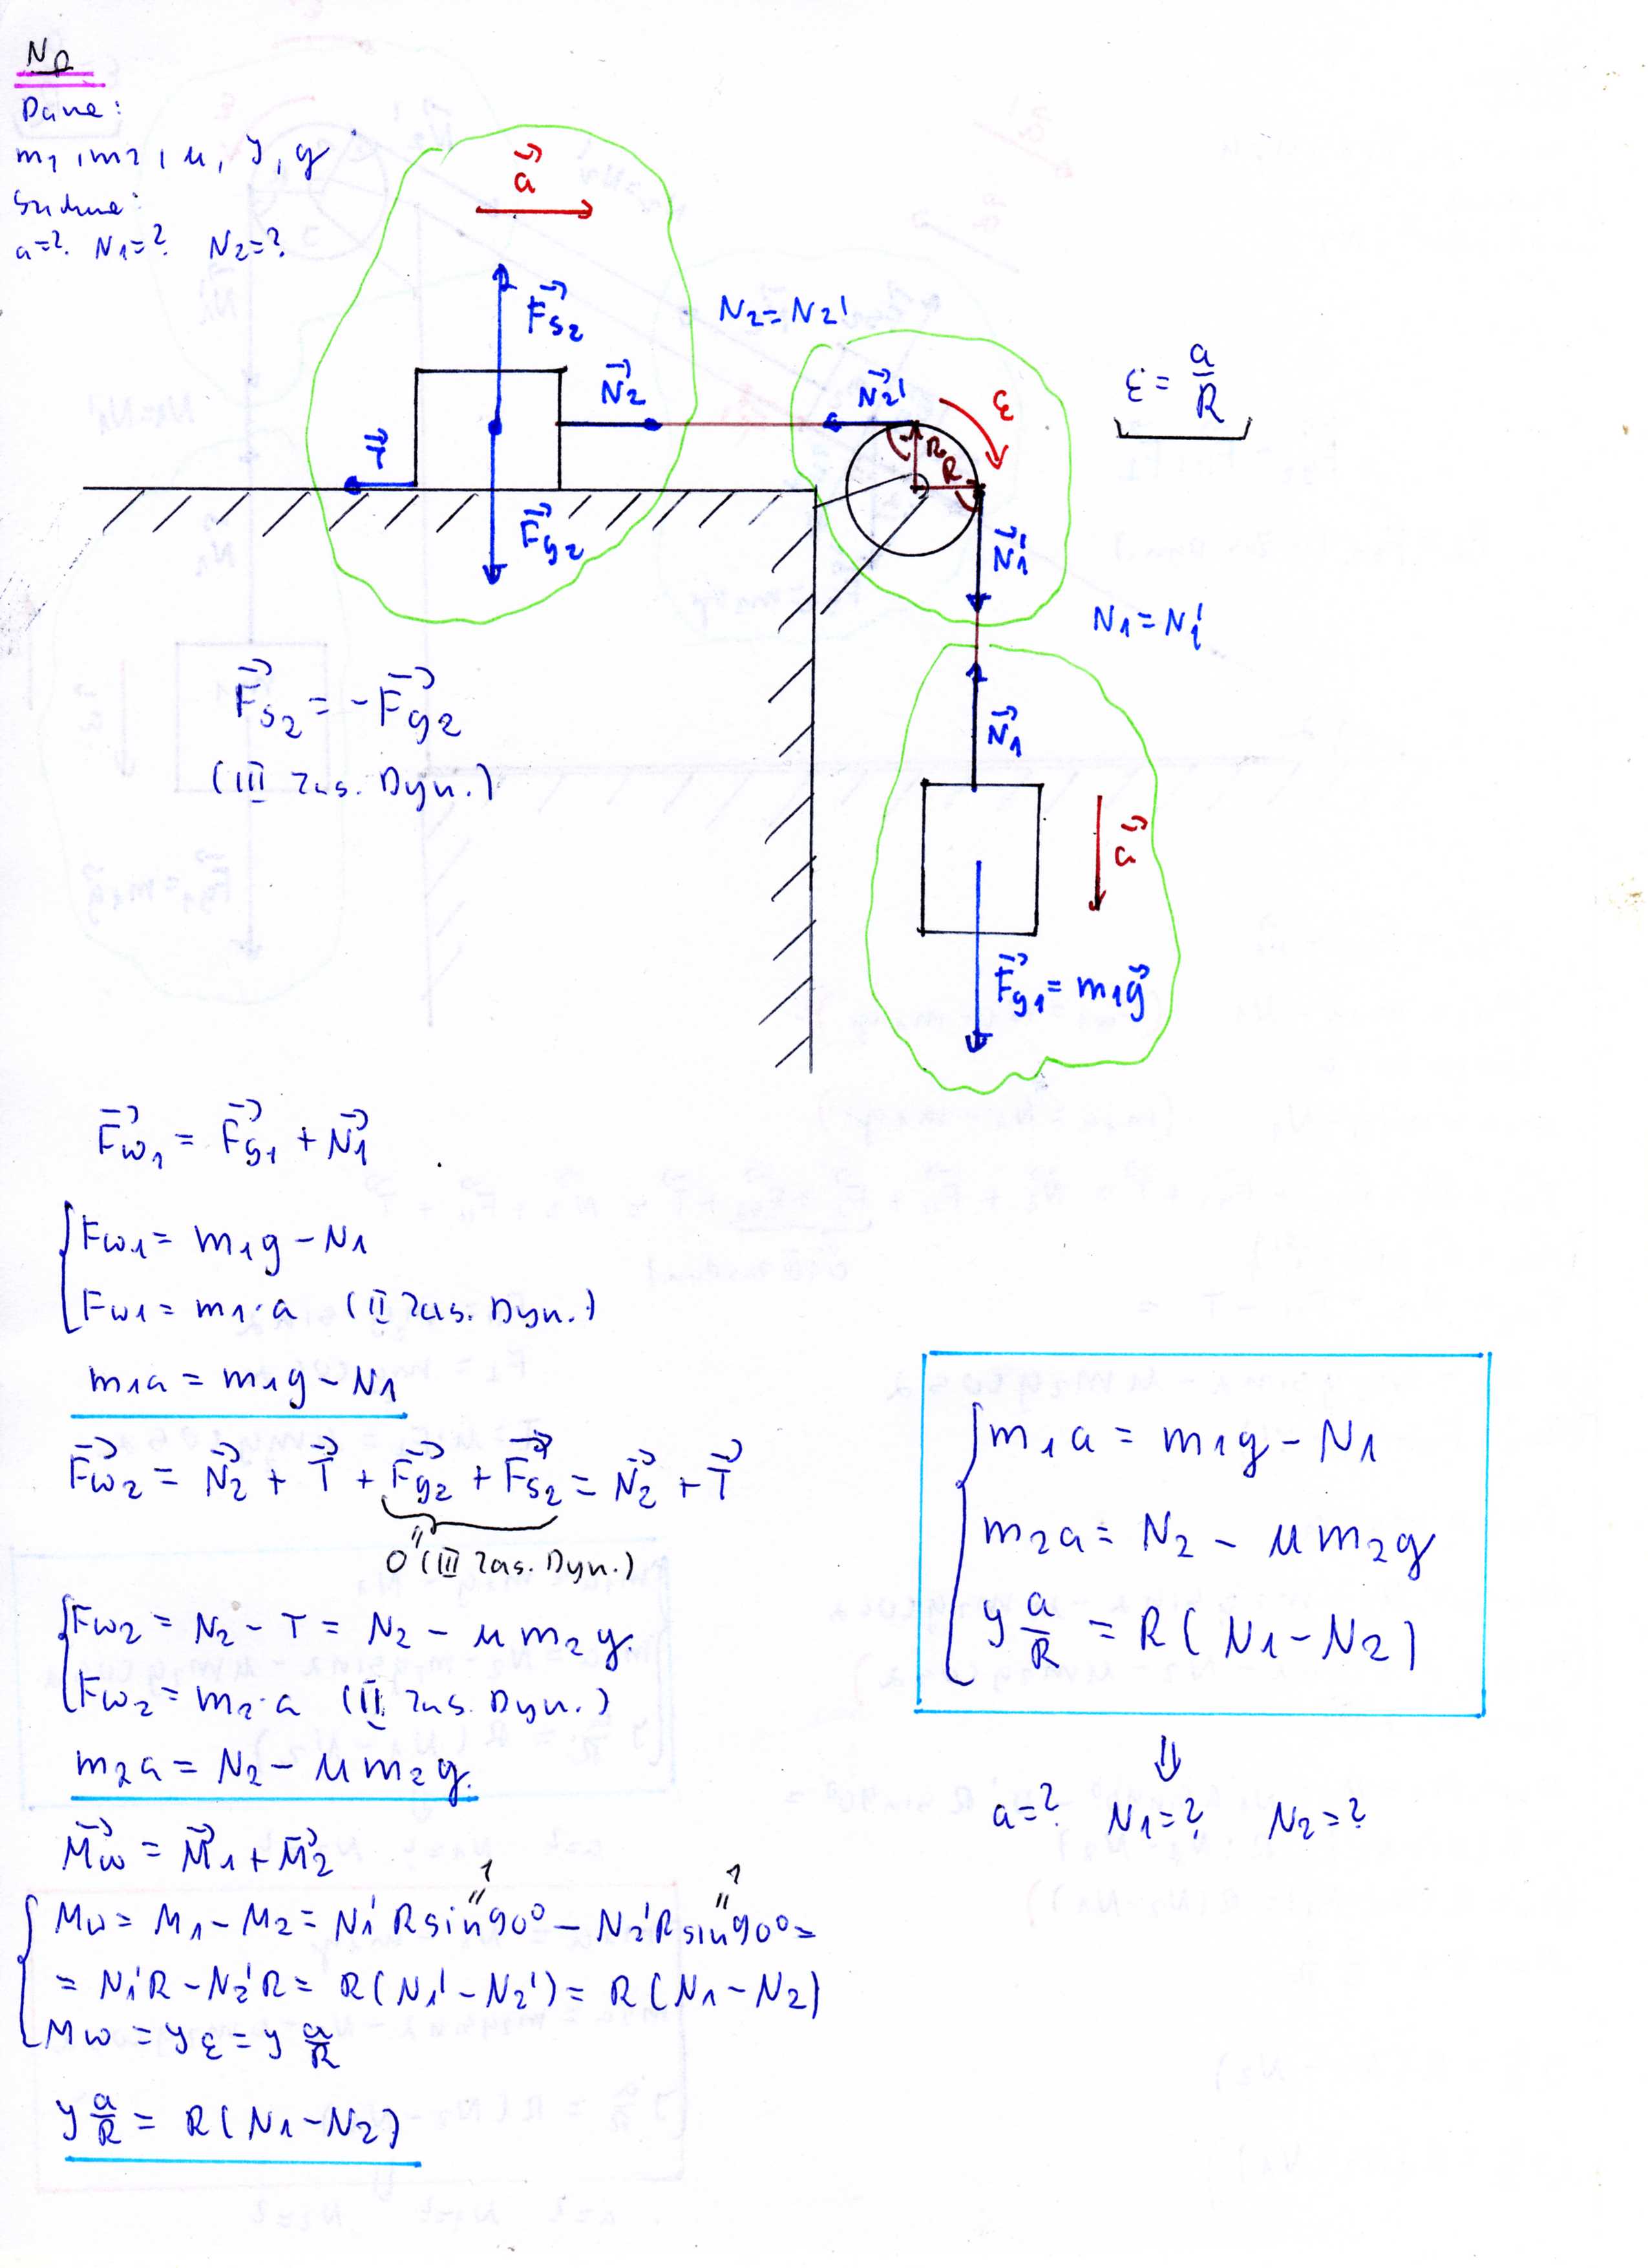 Np
Dane:
m1, m2, μ, y, g
Szukane:
a=? N1=? N2=?
a
Fs2
N2
T
Fg2
N2=N2'
N2'
ε
R
R
ε = a/R
N1'
N1=N1'
N1
a
Fg1 = m1g
Fs2 = -Fg2
(III zas. Dyn.)
Fw1 = Fg1 + N1
Fw1 = m1g - N1
Fw1 = m1·a (II zas. Dyn.)
m1a = m1g - N1
Fw2 = N2 + T + Fg2 + Fs2 = N2 + T
0 (III zas. Dyn.)
Fw2 = N2 - T = N2 - μm2g
Fw2 = m2·a (II zas. Dyn.)
m2a = N2 - μm2g
Mw = M1 + M2
1 1
Mw = M1 - M2 = N1'R sin90° - N2'R sin90° =
= N1'R - N2'R = R(N1' - N2') = R(N1 - N2)
Mw = yε = y a/R
y a/R = R(N1 - N2)
m1a = m1g - N1
m2a = N2 - μm2g
y a/R = R(N1 - N2)
⇓
a=? N1=? N2=?